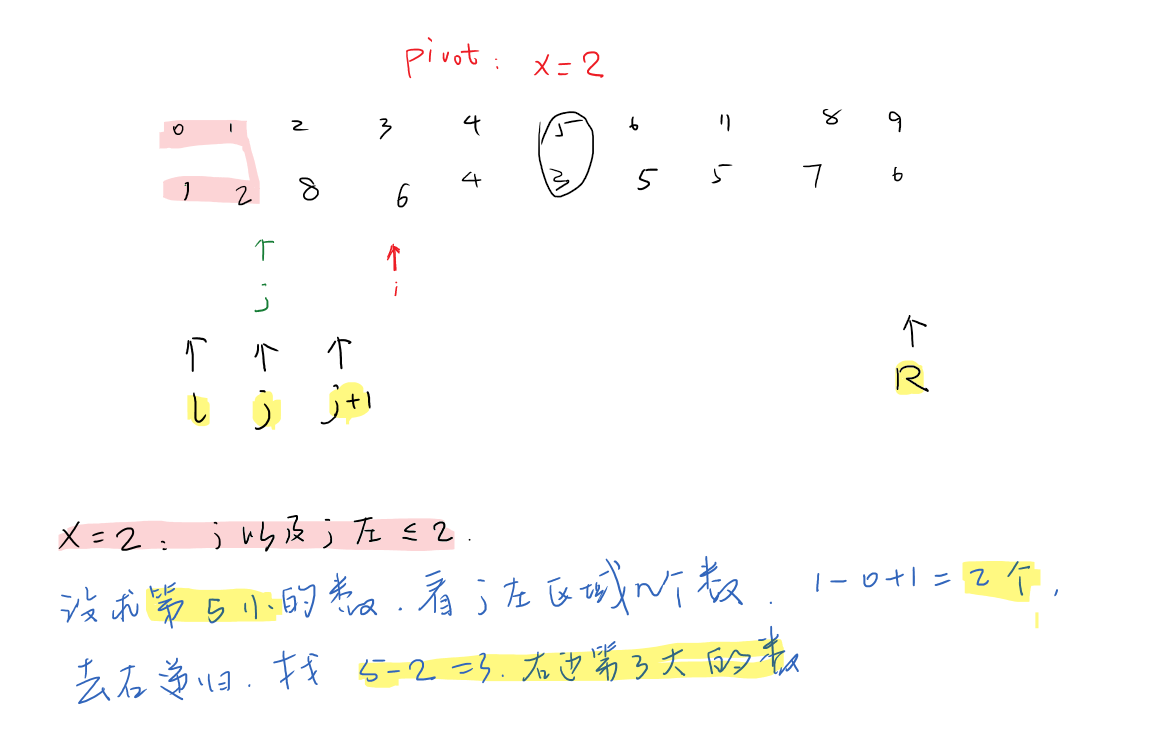 pivot: x=2
0 1 2 3 4 5 6 11 8 9
1 2 8 6 4 3 5 5 7 6
↑ ↑
j i
↑ ↑ ↑ ↑
l j j+1 R
x=2: j以及j左≤2.
设求第5小的数.看j左区域n个数. 1-0+1=2个,
去右递归.找 5-2=3.右边第3大的数